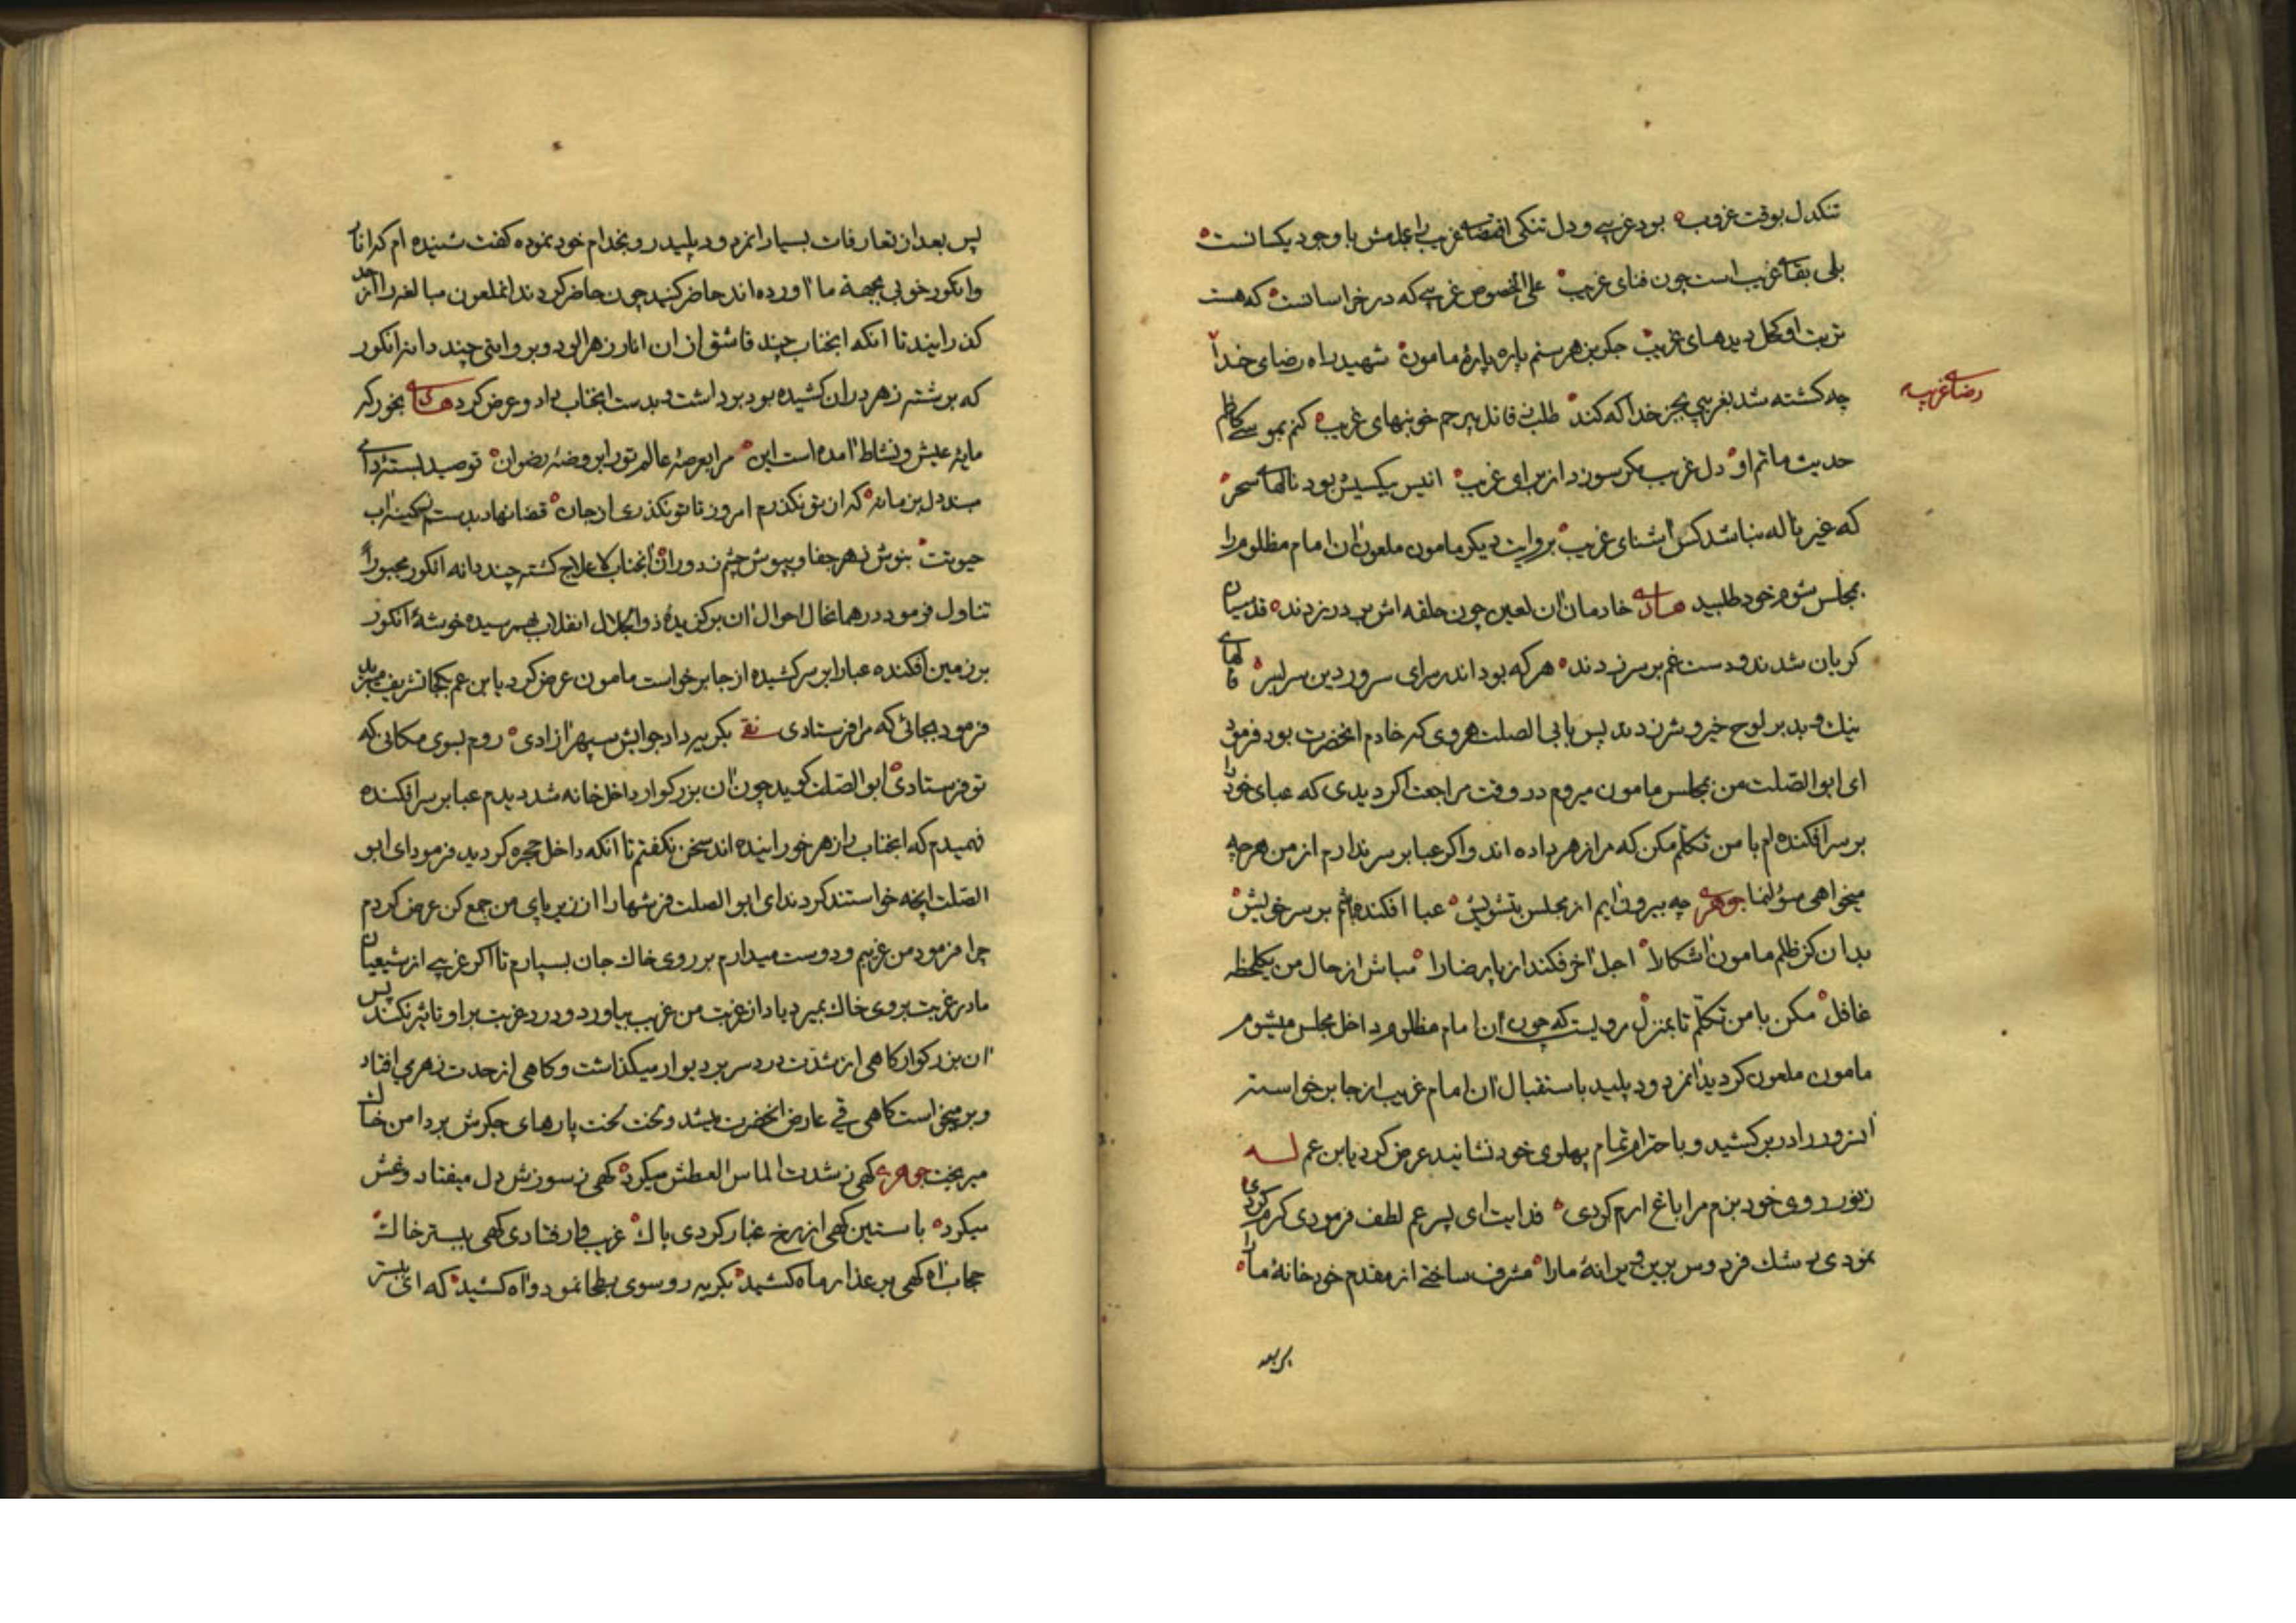 تنکدل بوقت غروب بود غریبی و دل تنکی اقتضای غریب عدمش با وجود یکسانست
بلی بقای غریب است چون فنای غریب علی الخصوص غریبی که در خراسانست که هست
تربت او کحل دیدهای غریب جکر بزهر ستم پاره پارهٔ مامون شهید راه رضای خدا
رضای غریب
چه کشته شد بغریبی بجز خدا که کند طلب ز قاتل بیرحم خونبهای غریب کنم بموسی کاظم
حدیث ماتم او دل غریب مکر سوزد از برای غریب انیس بیکسیش بود نالهای سحر
که غیر ناله نباشد کس اشنای غریب بروایت دیکر مامون ملعون ان امام مظلوم را
بمجلس شوم خود طلبید خادمان ان لعین چون حلقه اش بر در زدند قدسیان
کریان شدند و دست غم بر سر زدند هر که بود اندر سرای سرور دین سر بسر
نیك و بد بر لوح خیر و شر زدند پس بابی الصلت هروی که خادم انحضرت بود فرمود
ای ابو الصّلت من بمجلس مامون میروم در وقت مراجعت اکر دیدی که عبای خود را
بر سر افکنده ام با من تکلّم مکن که مرا زهر داده اند و اکر عبا بر سر ندارم از من هر چه
میخواهی سؤال نما جوهری چه بیرون ایم از مجلس بتشویش عبا افکنده باشم بر سر خویش
بدان کز ظلم مامون اشکارا اجل اخر فکند از پا رضا را مباش از حال من یکلحظه
غافل مکن با من تکلّم تا بمنزل مرویست که چون ان امام مظلوم داخل مجلس میشوم
مامون ملعون کردید انمردود پلید باستقبال ان امام غریب از جا برخواسته
انسرور را در بر کشید و با احترام تمام پهلوی خود نشانید عرض کرد یابن عم
ز نور روی خود بزم مرا باغ ارم کردی فدایت ای پسر عم لطف فرمودی کرم کردی
نمودی رشك فردوس برین ویرانهٔ ما را مشرف ساختی از مقدم خود خانهٔ ما را
پس بعد
پس بعد از تعارفات بسیار انمردود پلید رو بخدام خود نموده کفت شنیده ام که انار
و انکور خوبی بجهة ما اورده اند حاضر کنید چون حاضر کردند انملعون مبالغه را از حد
کذرانیند تا انکه انجناب چند قاشق از ان انار زهرالود و بروایتی چند دانه انکور
که برشته زهر در ان کشیده بود برداشت و بدست انجناب داد و عرض کرد بخور که
مایه عیش و نشاط امده است این مرا بعرصهٔ عالم تو را بروضهٔ رضوان
دل بزمانه که از تو نکذرم امروز تا تو نکذری از جان قضا نهاد بدستم
حیوتت بنوش زهر جفا و بپوش چشم ز دوران انجناب لاعلاج کشته چند دانه انکور مجبوراً
تناول فرمود در همانحال احوال ان برکزیدهٔ ذو الجلال انقلاب بهمرسیده خوشهٔ انکور
بر زمین افکنده عبا را بر سر کشیده از جا برخواست مامون عرض کرد یابن عم بکجا تشریف میبرید
فرمود بجائی که مرا فرستادی بکریه داد جوابش سپهر ازادی روم بسوی مکانی که
تو فرستادی ابو الصّلت کوید چون ان بزرکوار داخل خانه شد دیدم عبا بر سر افکنده
فهمیدم که انجناب را زهر خورانیده اند سخن نکفتم تا انکه داخل حجره کردید فرمود ای ابو
الصّلت انچه خواستند کردند ای ابو الصلت فرشها را از زیر پای من جمع کن عرض کردم
چرا فرمود من غریبم و دوست میدارم بر روی خاك جان بسپارم تا اکر غریبی از شیعیان
ما در غربت بر روی خاك بمیرد یاد از غربت من غریب بیاورد و درد غربت بر او تاثیر نکند پس
ان بزرکوار کاهی از شدّت درد سر بر دیوار میکذاشت و کاهی از حدت زهر می افتاد
و برمیخواست کاهی قی عارض انحضرت میشد و لخت لخت پارهای جکرش بر دامن خاك
میریخت جوهری کهی ز شدت الماس العطش میکرد کهی ز سوزش دل میفتاد و غش
میکرد باستین کهی از رخ غبار کردی پاك غریب وار فتادی کهی ببستر خاك
حجاب اه کهی بر عذار ماه کشید بکریه رو سوی بطحا نمود و اه کشید که ای